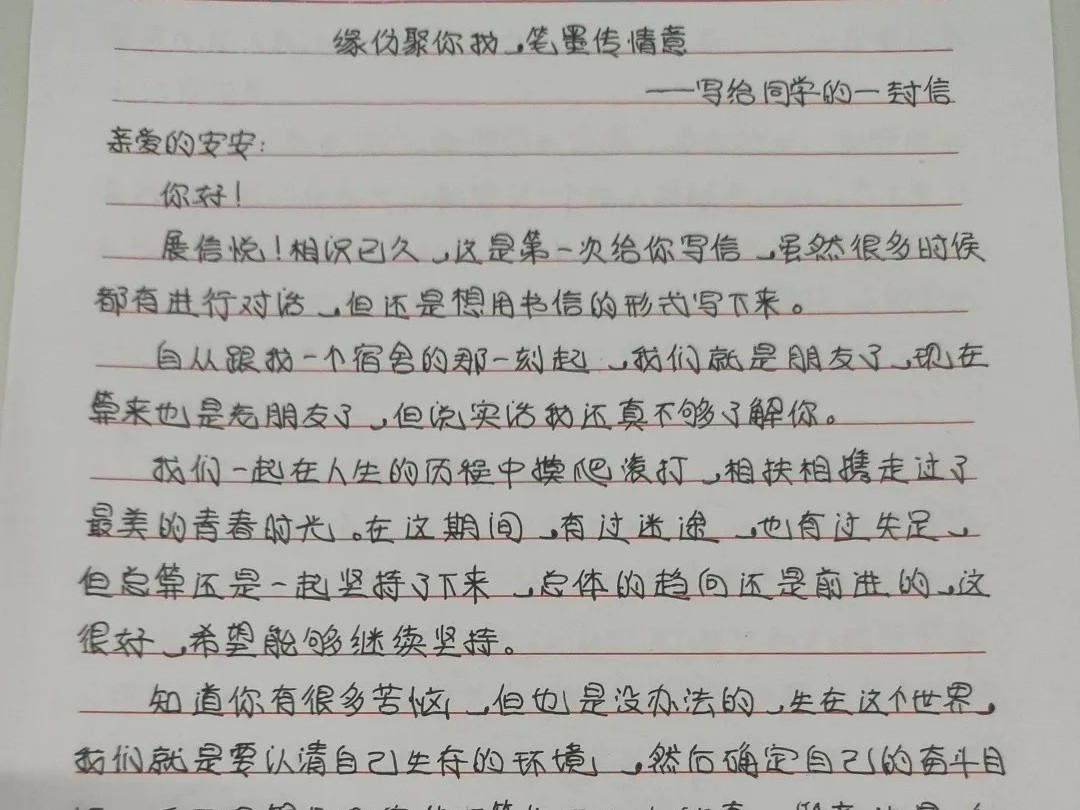 缘份聚你我，笔墨传情意
——写给同学的一封信
亲爱的安安：
你好！
展信悦！相识已久，这是第一次给你写信，虽然很多时候
都有进行对话，但还是想用书信的形式写下来。
自从跟我一个宿舍的那一刻起，我们就是朋友了，现在
算来也是老朋友了，但说实话我还真不够了解你。
我们一起在人生的历程中摸爬滚打，相扶相携走过了
最美的青春时光。在这期间，有过迷途，也有过失足，
但总算还是一起坚持了下来，总体的趋向还是前进的，这
很好，希望能够继续坚持。
知道你有很多苦恼，但也是没办法的，生在这个世界，
我们就是要认清自己生存的环境，然后确定自己的奋斗目